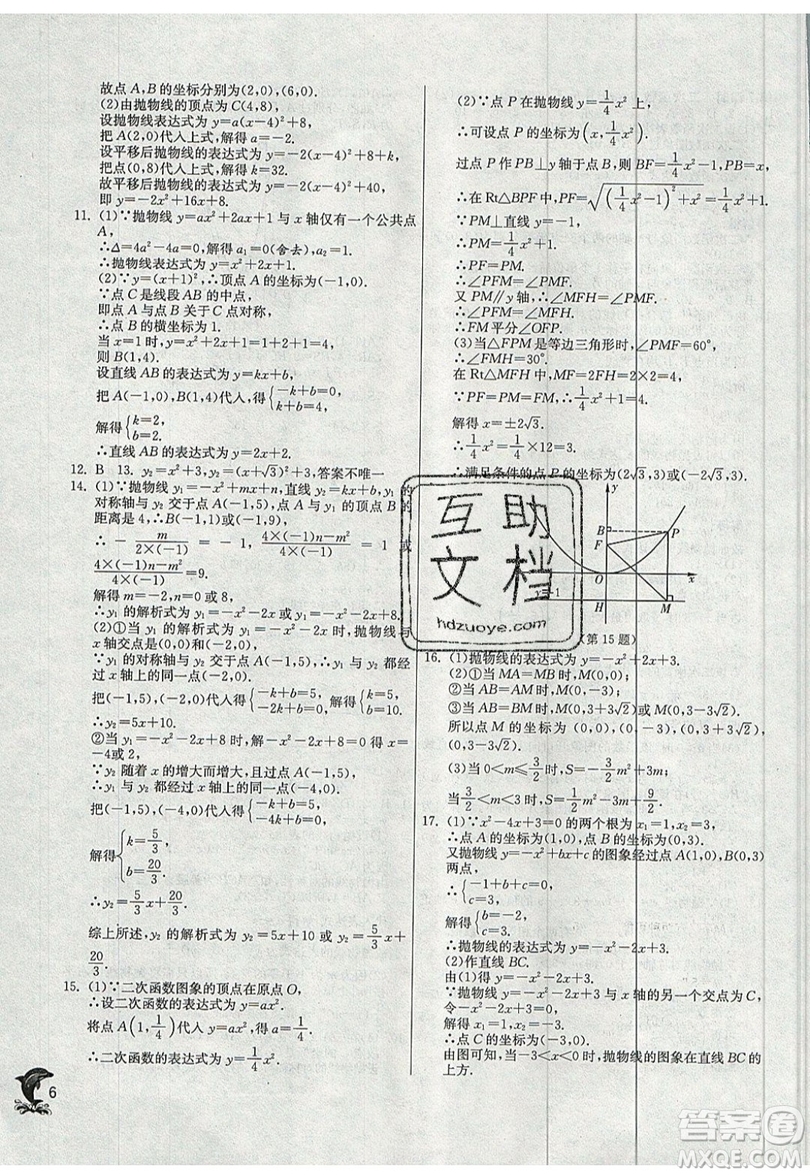 故点 A,B 的坐标分别为(2,0),(6,0).
(2)由抛物线的顶点为 C(4,8),
设抛物线表达式为 y=a(x-4)²+8,
把 A(2,0)代入上式,解得 a=-2.
设平移后抛物线的表达式为 y=-2(x-4)²+8+k,
把点(0,8)代入上式,解得 k=32.
故平移后抛物线的表达式为 y=-2(x-4)²+40,
即 y=-2x²+16x+8.
11. (1)∵抛物线 y=ax²+2ax+1 与 x 轴仅有一个公共点
A,
∴Δ=4a²-4a=0,解得 a₁=0(舍去),a₂=1.
∴抛物线表达式为 y=x²+2x+1.
(2)∵y=(x+1)²,∴顶点 A 的坐标为(-1,0).
∵点 C 是线段 AB 的中点,
即点 A 与点 B 关于 C 点对称,
∴点 B 的横坐标为 1.
当 x=1 时,y=x²+2x+1=1+2+1=4,
则 B(1,4).
设直线 AB 的表达式为 y=kx+b,
把 A(-1,0),B(1,4)代入,得{-k+b=0, k+b=4,
解得{k=2, b=2.
∴直线 AB 的表达式为 y=2x+2.
12. B 13. y₂=x²+3, y₂=(x+√3)²,答案不唯一
14. (1)∵抛物线 y₁=-x²+mx+n,直线 y₂=kx+b, y₁ 的
对称轴与 y₂ 交于点 A(-1,5),点 A 与 y₁ 的顶点 B 的
距离是 4,
∴ -m/(2×(-1)) = -1, (4×(-1)n-m²)/(4×(-1)) = 1 或
(4×(-1)n-m²)/(4×(-1))=9.
解得 m=-2,n=0 或 8,
∴y₁ 的解析式为 y₁=-x²-2x 或 y₁=-x²-2x+8.
(2)①当 y₁ 的解析式为 y₁=-x²-2x 时,抛物线与
x 轴交点是(0,0)和(-2,0),
∵y₁ 的对称轴与 y₂ 交于点 A(-1,5),∴y₁ 与 y₂ 都经
过 x 轴上的同一点(-2,0).
把(-1,5),(-2,0)代入得{-k+b=5, -2k+b=0, 解得{k=5, b=10.
∴y₂=5x+10.
②当 y₁=-x²-2x+8 时,解-x²-2x+8=0 得 x=-4 或
2,
∵y₂ 随着 x 的增大而增大,且过点 A(-1,5),
∴y₁ 与 y₂ 都经过 x 轴上的同一点(-4,0).
把(-1,5),(-4,0)代入得{-k+b=5, -4k+b=0,
解得{k=5/3, b=20/3.
∴y₂=5/3x+20/3.
综上所述,y₂ 的解析式为 y₂=5x+10 或 y₂=5/3x+
20/3.
15. (1)∵二次函数图象的顶点在原点 O,
∴设二次函数的表达式为 y=ax².
将点 A(1,1/4)代入 y=ax²,得 a=1/4.
∴二次函数的表达式为 y=1/4x².
6
(2)∵点 P 在抛物线 y=1/4x² 上,
∴可设点 P 的坐标为(x,1/4x²).
过点 P 作 PB⊥y 轴于点 B,则 BF=1/4x²-1,PB=x.
∴在 Rt△BPF 中,PF=√((1/4x²-1)²+x²)=1/4x²+1.
∵PM⊥直线 y=-1,
∴PM=1/4x²+1.
∴PF=PM.
∴∠PFM=∠PMF.
又 PM∥y 轴,∴∠MFH=∠PMF.
∴∠PFM=∠MFH.
∴FM 平分∠OFP.
(3)当△FPM 是等边三角形时,∠PMF=60°,
∴∠FMH=30°.
在 Rt△MFH 中,MF=2FH=2×2=4,
∵PF=PM=FM,∴1/4x²+1=4,
解得 x=±2√3.
∴1/4x²=1/4×12=3.
∴满足条件的点 P 的坐标为(2√3,3)或(-2√3,3).
y
B
P
F
O
x
y=-1
H
M
互助
文档
hdzuoye.com
(第 15 题)
16. (1)抛物线的表达式为 y=-x²+2x+3.
(2)①当 MA=MB 时,M(0,0);
②当 AB=AM 时,M(0,-3);
③当 AB=BM 时,M(0,3+3√2)或 M(0,3-3√2).
所以点 M 的坐标为 (0,0),(0,-3),(0,3+3√2),
(0,3-3√2).
(3)当 0<m≤3/2时,S=-3/2m²+3m;
当3/2<m<3 时,S=1/2m²-3m+9/2.
17. (1)∵x²-4x+3=0 的两个根为 x₁=1,x₂=3,
∴点 A 的坐标为(1,0),点 B 的坐标为(0,3).
又抛物线 y=-x²+bx+c 的图象经过点 A(1,0),B(0,3)
两点,
∴{-1+b+c=0, c=3,
解得{b=-2, c=3.
∴抛物线的表达式为 y=-x²-2x+3.
(2)作直线 BC.
由(1)得 y=-x²-2x+3 与 x 轴的另一个交点为 C,
令-x²-2x+3=0,
解得 x₁=1,x₂=-3.
∴点 C 的坐标为(-3,0).
由图可知,当-3<x<0 时,抛物线的图象在直线 BC 的
上方.
答案圈
MXQE.COM